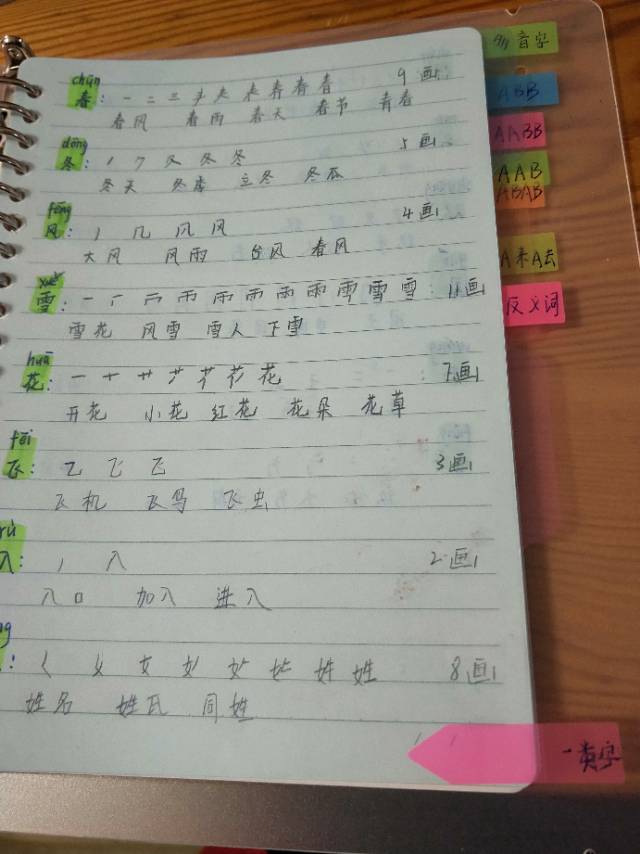 chūn
春: 一 二 三 声 夫 夫 春 春 春 9画
春风 春雨 春天 春节 青春
dōng
冬: 丿 ク 夂 冬 冬 5画
冬天 冬季 立冬 冬瓜
fēng
风: 丿 几 风 风 4画
大风 风雨 台风 春风
xuě
雪: 雪 雪 11画
雪花 风雪 雪人 下雪
huā
花: 一 十 艹 花 7画
开花 小花 红花 花朵 花草
fēi
飞: 乙 飞 飞 3画
飞机 飞鸟 飞虫
rù
入: 丿 入 2画
入口 加入 进入
ng
: く 女 女 姓 姓 8画
姓名 姓氏 同姓
音字
ABB
AABB
AAB
ABAB
A来A去
反义词
一类字